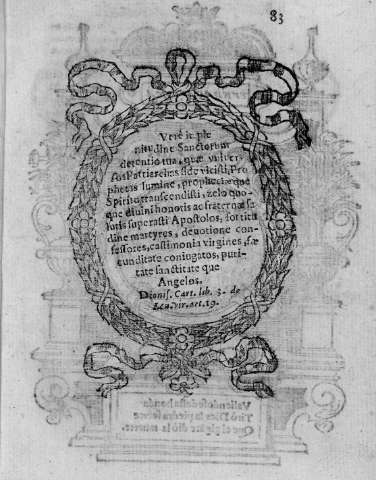 83
Verè in ple
nitudine Sanctorum
detentio tua, quæ vniver-
sos Patriarchas fide vicisti, Pro
phetas lumine, prophetiæque
Spiritu transcendisti, zelo quo-
que diuini honoris ac fraternæ sa
lutis superasti Apostolos, fortitu
dine martyres, deuotione con-
fessores, castimonia virgines, fæ
cunditate coniugatos, puri-
tate sanctitate que
Angelos.
Dionis. Cart. lib. 3. de
lau. vir. art. 19.